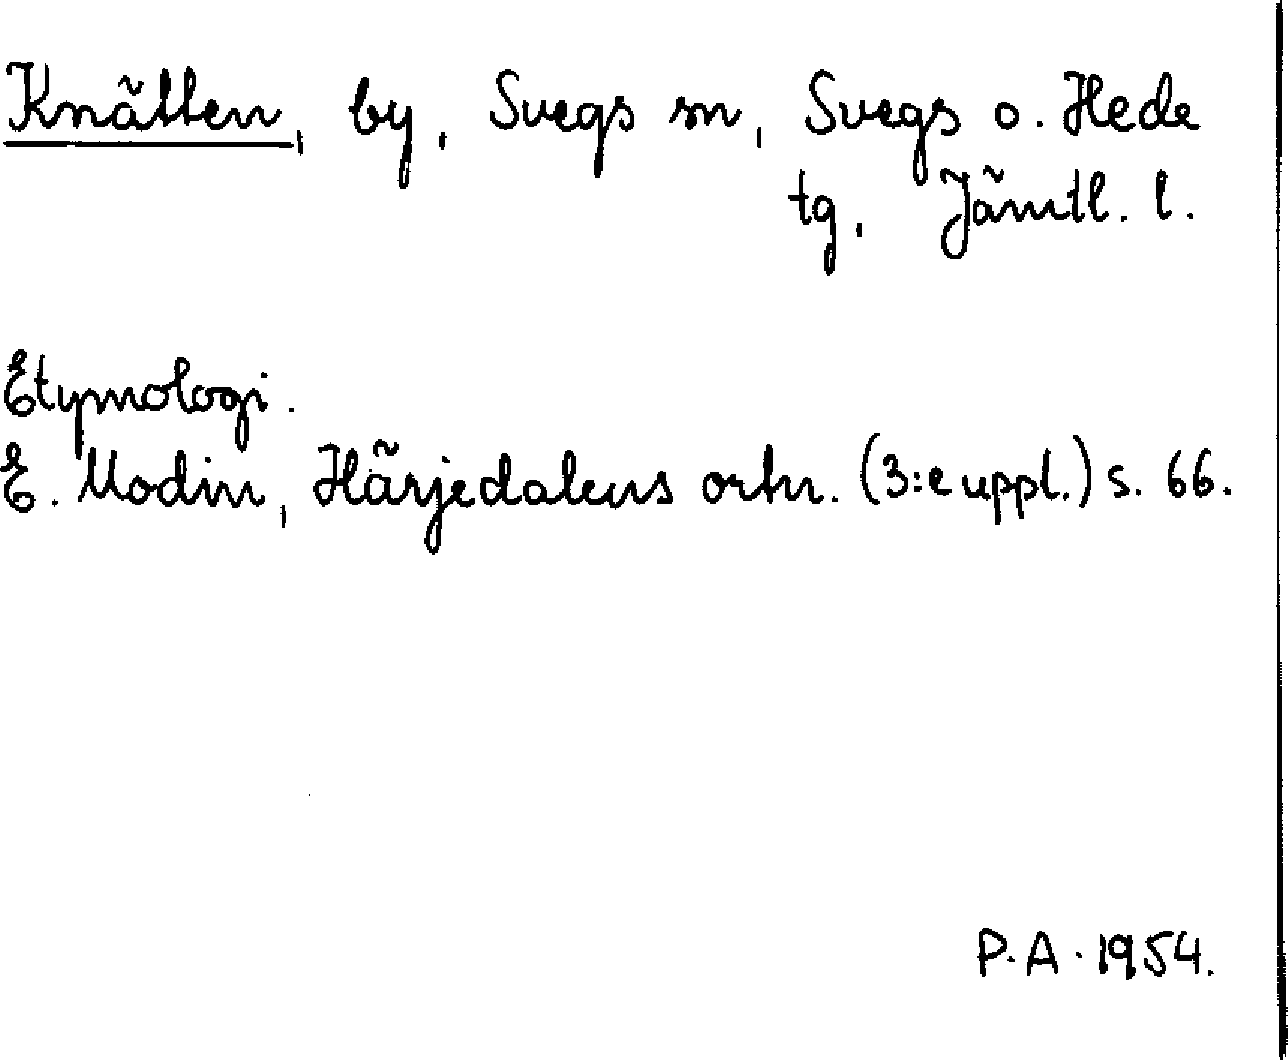 Knätten, by, Svegs sn, Svegs o. Hede
tg, Jämtl. l.
Etymologi.
E. Modin, Härjedalens ortn. (3:e uppl.) s. 66.
P.A. 1954.